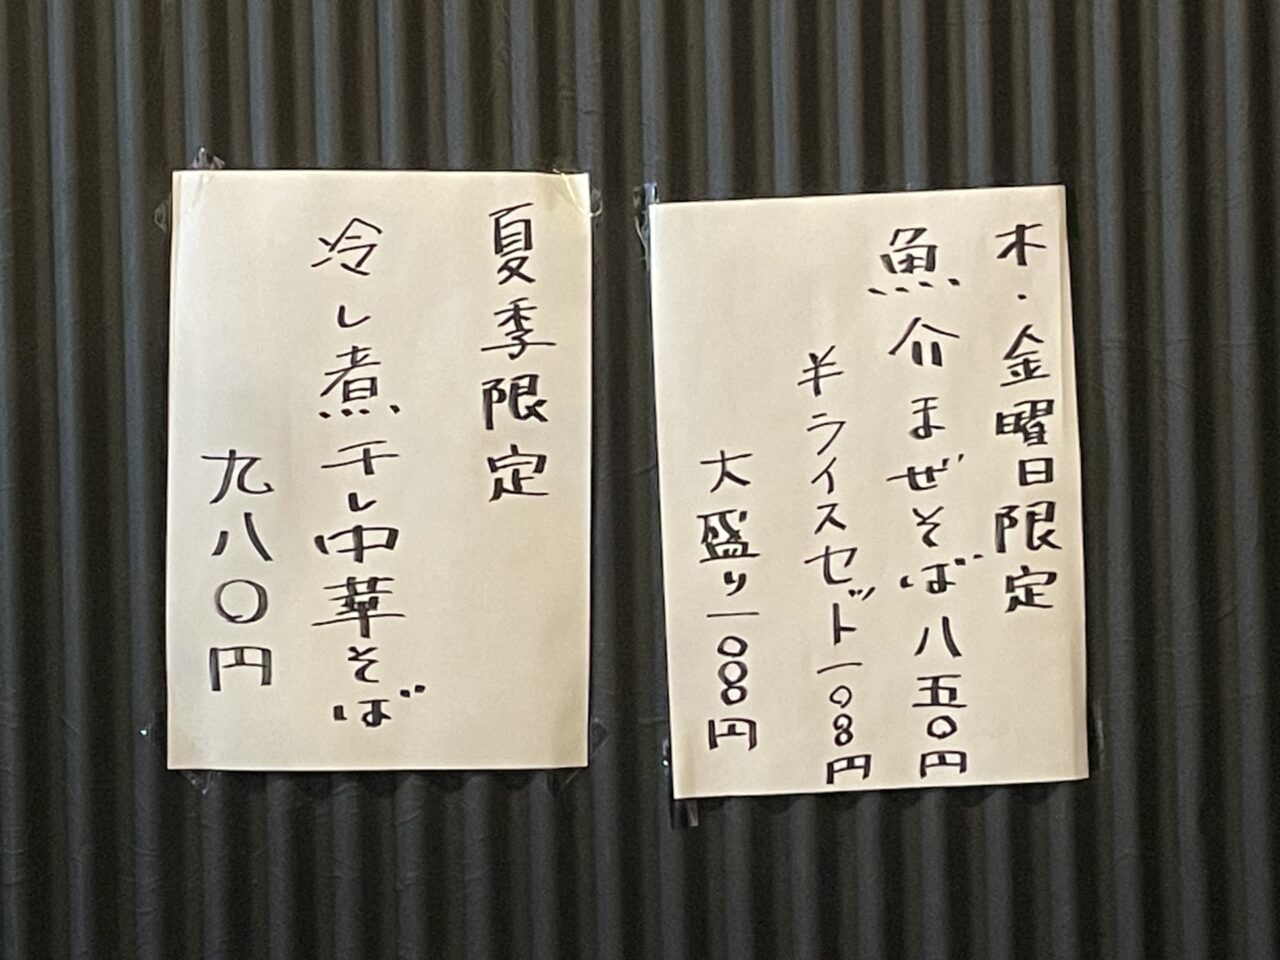 木・金曜日限定
魚介まぜそば八五〇円
半ライスセット一〇〇円
大盛り一〇〇円
夏季限定
冷し煮干し中華そば
九八〇円